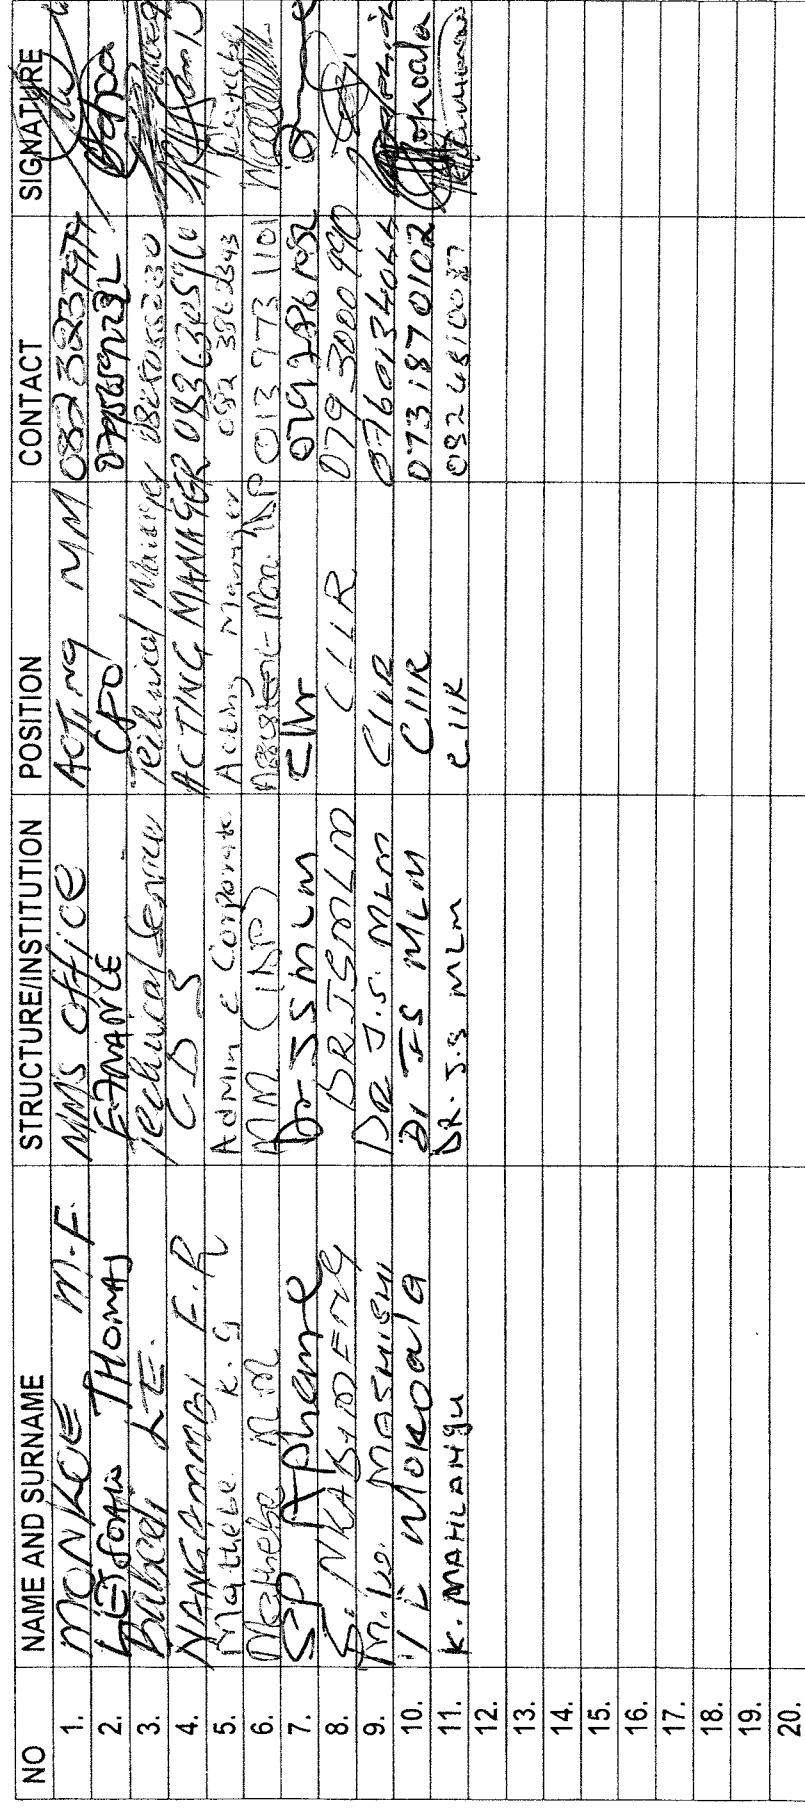 NO NAME AND SURNAME STRUCTURE/INSTITUTION POSITION CONTACT SIGNATURE
1. MONKOE M.F. MM'S Office ACTING MM 0823237974
2. THOMAS FINANCE CFO
3. L.E. Technical Service Technical Manager
4. F.R CDS ACTING MANAGER 0836305960
5. Mathebe K.G Admin & Corporate Acting Manager 082 3862343
6. Mathebe M.M MM (IDP) Assistant Man. IDP 013 973 1101
7. SP Aphane Dr JSMLM Cllr
8. S. NKABINDE DR JSMLM CLLR 079 3000 990
9. MASHISHI DR J.S. MLM CllR 0760134066
10. Mokoala MLM CllR 073 187 0102 Mokoala
11. K. MAHLANGU DR. J.S MLM CllR
12.
13.
14.
15.
16.
17.
18.
19.
20.